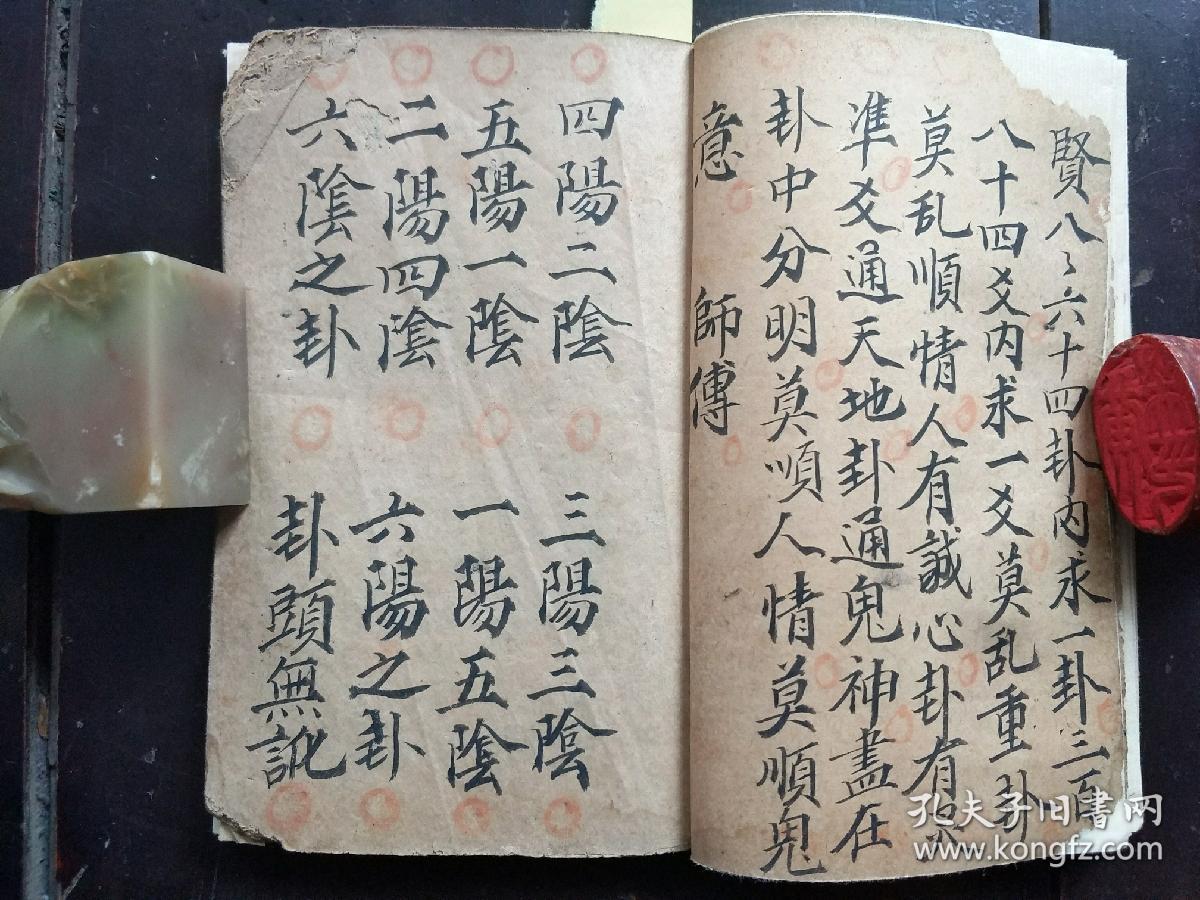 賢八〻六十四卦内求一卦三百
八十四爻内求一爻莫乱重卦
莫乱順情人有誠心卦有
準爻通天地卦通鬼神盡在
卦中分明莫順人情莫順鬼
意 師傅
四陽二陰 三陽三陰
五陽一陰 一陽五陰
二陽四陰 六陽之卦
六陰之卦 卦頭無訛
孔夫子旧書网
www.kongfz.com